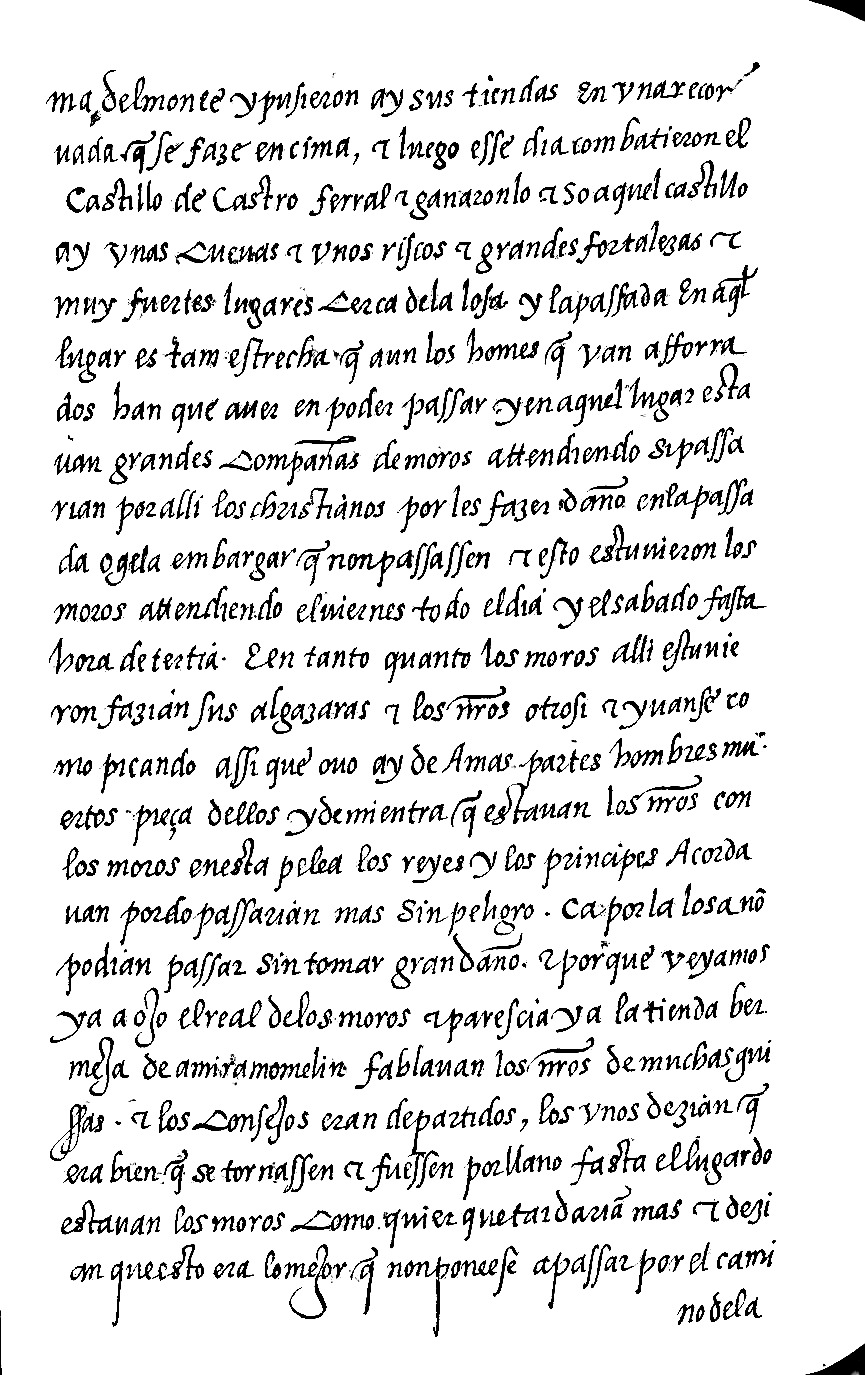 ma delmonte y pusieron ay sus tiendas En vna recor
uada q̃ se faze en cima, τ luego esse dia combatieron el
Castillo de Castro ferral τ ganaronlo τ so aquel castillo
ay vnas Cueuas τ vnos riscos τ grandes fortalezas τ
muy fuertes lugares Cerca dela losa y la passada En aq̃l
lugar es tam estrecha q̃ aun los homes q̃ van afforra
dos han que auer en poder passar y en aquel lugar esta
uan grandes Compañas de moros attendiendo si passa
rian por alli los christianos por les fazer daño en la passa
da o gela embargar q̃ non passassen τ esto estuuieron los
moros attendiendo el viernes todo el dia y el sabado fasta
hora de tertia. E en tanto quanto los moros alli estuuie
ron fazian sus algazaras τ los nr̃os otrosi τ yuanse co
mo picando assi que ouo ay de Amas partes hombres mu
ertos pieça dellos y demientra q̃ estauan los nr̃os con
los moros en esta pelea los reyes y los principes Acorda
uan por do passarian mas Sin peligro. Ca por la losa nõ
podian passar Sin tomar gran daño. τ porque veyamos
ya a ojo el real delos moros τ parescia ya la tienda ber
meja de amiramomelin fablauan los nr̃os de muchas gui
ssas. τ los Consejos eran departidos, los vnos dezian q̃
era bien q̃ se tornassen τ fuessen por llano fasta el lugar do
estauan los moros Como quier que tardariã mas τ dezi
an que esto era lo mejor q̃ non ponerse a passar por el cami
no dela